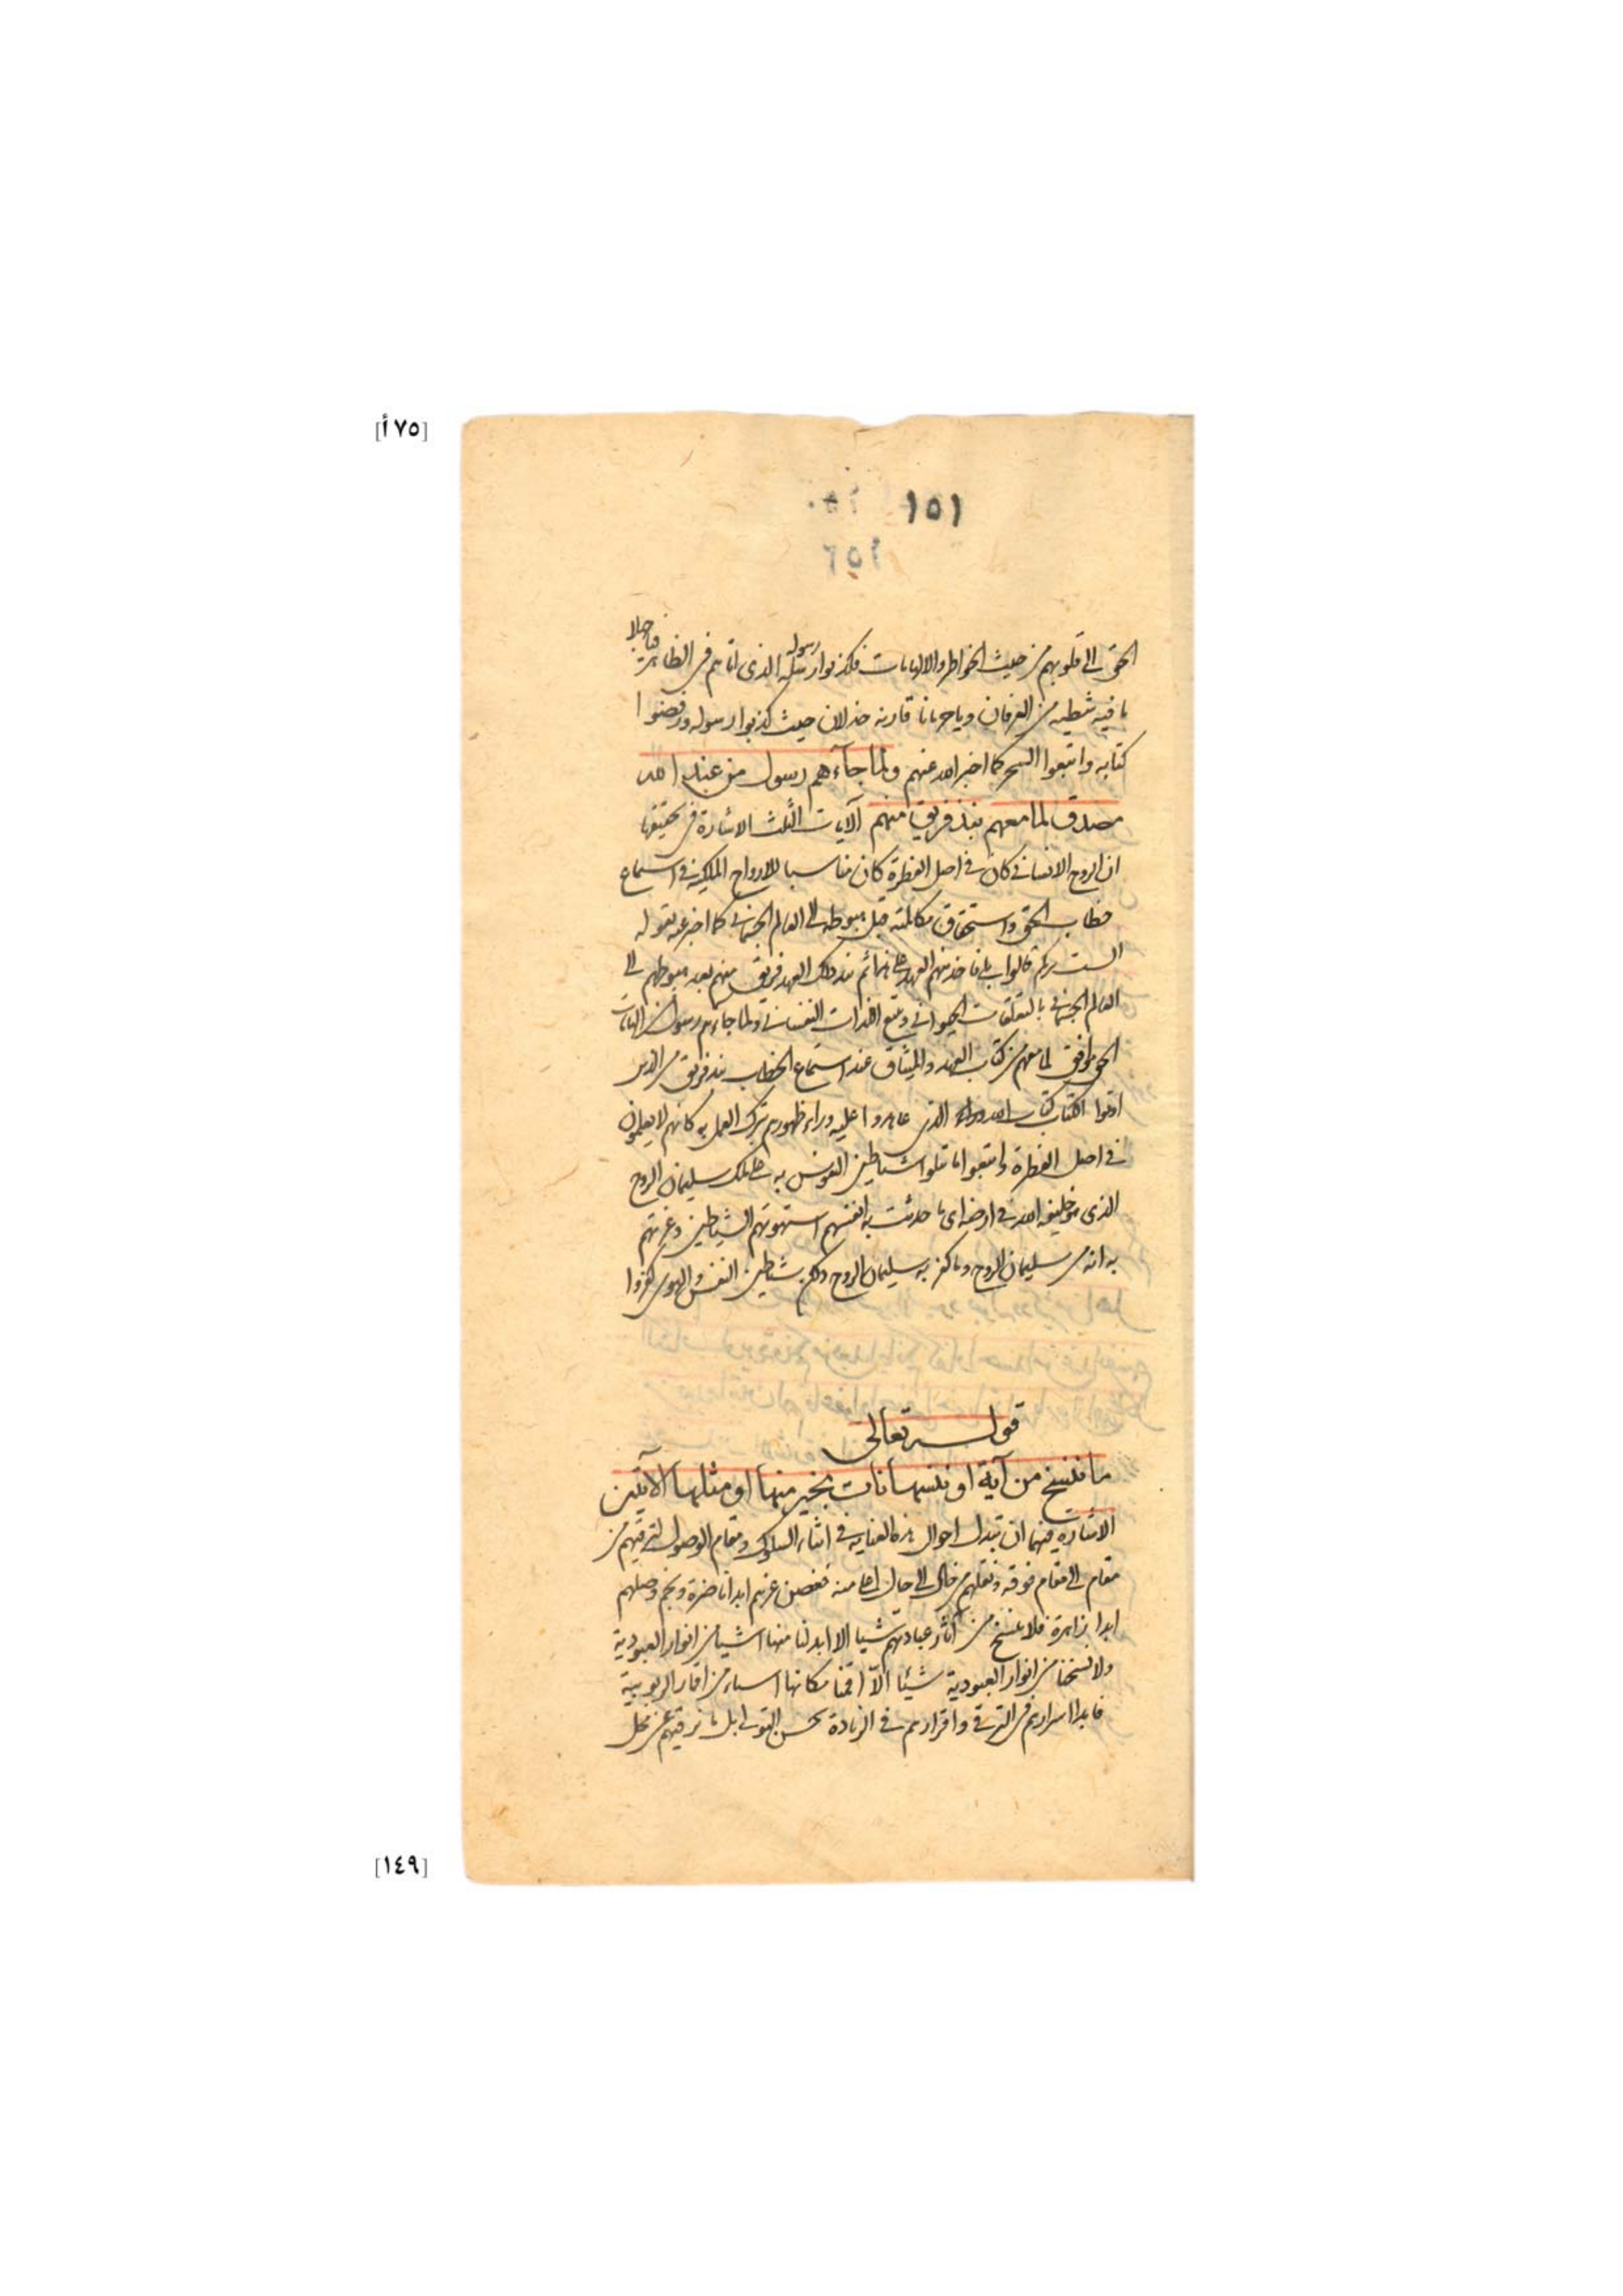 [٧٥أ]
١٥١
١٥٢
الحق الى قلوبهم من حيث الخواطر والالهامات فكذبوا رسله رسوله الذي اتاهم في الظاهر فيا جهلا
ما فيه شظية من العرفان ويا حرمانا قارنه خذلان حيث كذبوا رسوله ورفضوا
كتابه واتبعوا السحر كما اخبر الله عنهم ولما جآءهم رسول من عند الله
مصدق لما معهم نبذ فريق منهم الآيات الثلث الاشارة في تحقيقها
ان الروح الانساني كان في اصل الفطرة كان مناسبا للارواح الملكية في استماع
خطاب الحق واستحقاق مكالمته قبل هبوطه الى العالم الجسماني كما اخبر عنه بقوله
الست بربكم قالوا بلى فاخذ منهم العهد ثم نبذ ذلك العهد فريق منهم بعد هبوطهم الى
العالم الجسماني بالتعلقات الحيواني وتتبع اللذات النفساني ولما جاءهم رسول الهامات
الحق موافق لما معهم من كتاب العهد والميثاق عند استماع الخطاب نبذ فريق من الذين
اوتوا الكتاب كتاب الله الذي عاهدوا عليه وراء ظهورهم بترك العمل به كانهم لا يعلمون
في اصل الفطرة واتبعوا ما تتلوا شياطين النفوس به على ملك سليمان الروح
الذي هو خليفة الله في ارضه اي ما حدثت به انفسهم استهوتهم الشياطين وغرتهم
به انه من سليمان الروح وما كفر به سليمان الروح ولكن شياطين النفس والهوى كفروا
قوله تعالى
ما ننسخ من آية او ننسها نات بخير منها او مثلها الآيتين
الاشارة فيهما ان تبدل احوال هذه العناية في اثناء السلوك ومقام الوصول لترقيهم من
مقام الى مقام فوقه ونقلهم من حال الى حال اعلا منه فغصن عزهم ابدا ناضرة ونجم وصلهم
ابدا زاهرة فلا ننسخ من آثار عبادتهم شيا الا ابدلنا منها اشيا من انوار العبودية
ولا نسخنا من انوار العبودية شيئا الّا اقمنا مكانها اسياء من اقمار الربوبية
فابدا اسرارهم في الترقي واقرارهم في الزيادة بحسن التولي بل ما نرقيهم عن محل
[١٤٩]